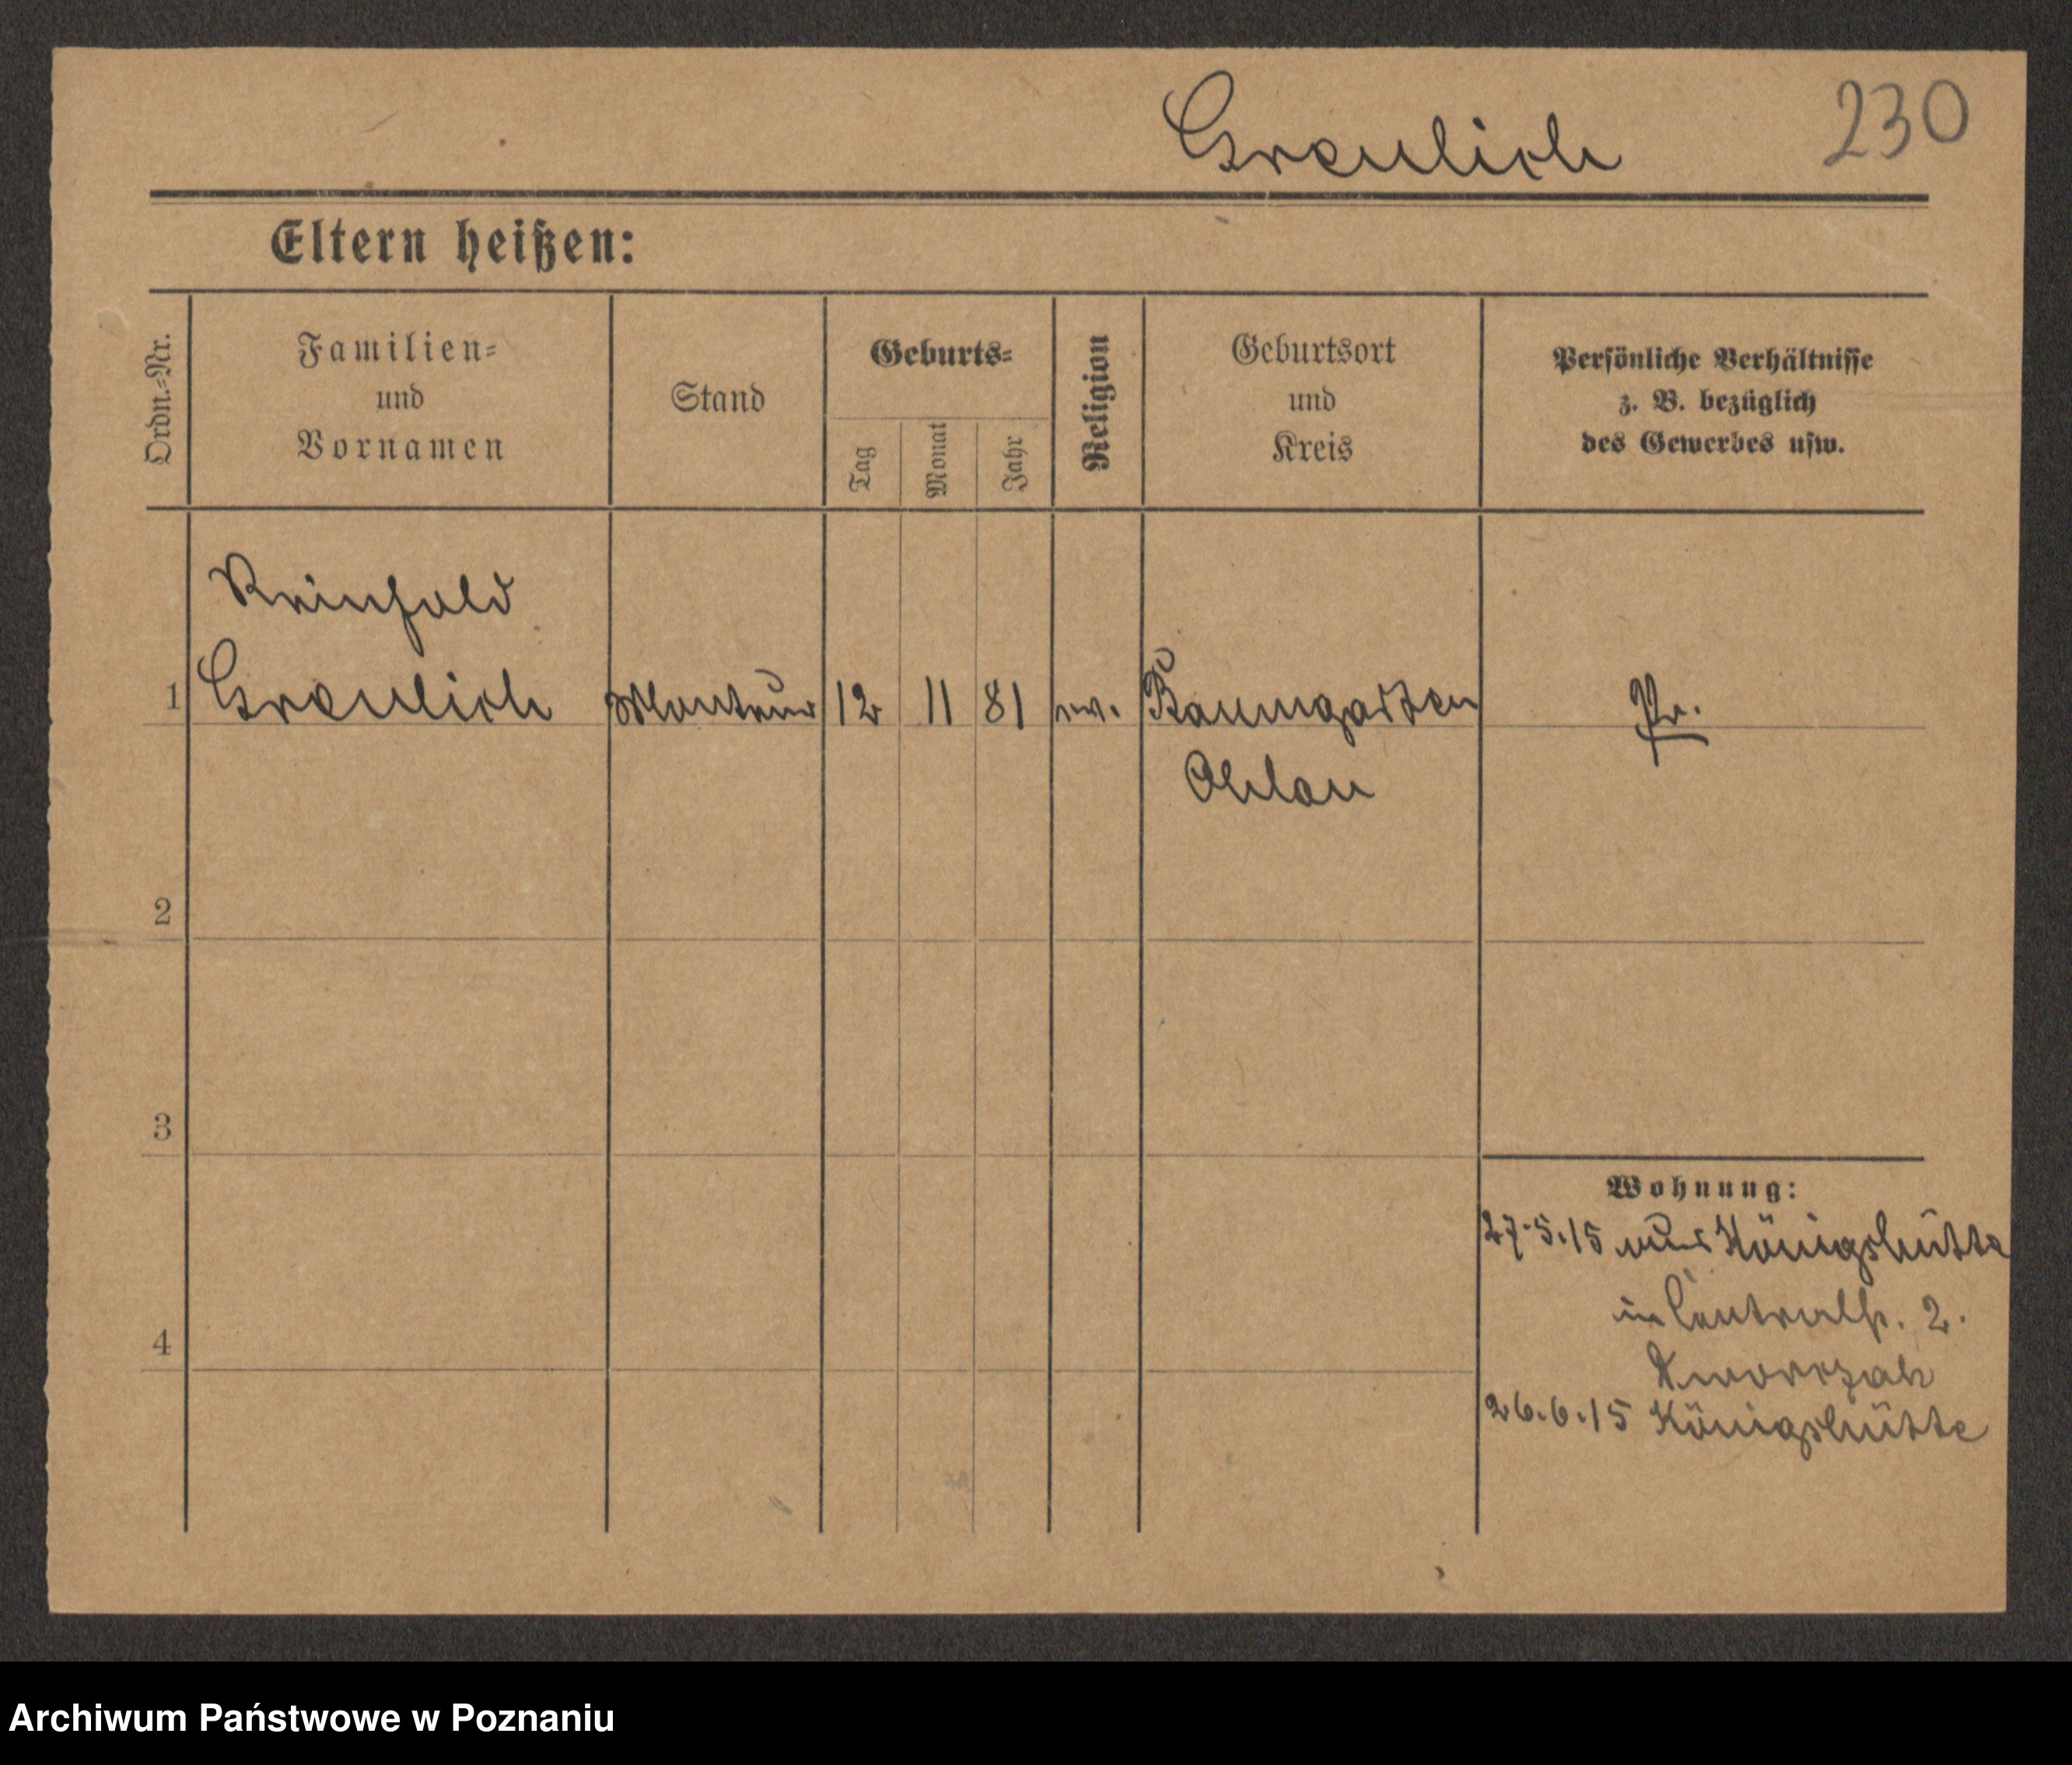 Greulich 230
Eltern heißen:
Ordn.-Nr. Familien- und Vornamen Stand Geburts- Tag Monat Jahr Religion Geburtsort und Kreis Persönliche Verhältnisse z. B. bezüglich des Gewerbes usw.
Reinhold
1 Greulich Monteur 12 11 81 ev. Baumgarten Pr.
Ohlau
2
3
Wohnung:
27.5.15 aus Königshütte
in Centralh. 2.
4
26.6.15 Königshütte
Archiwum Państwowe w Poznaniu